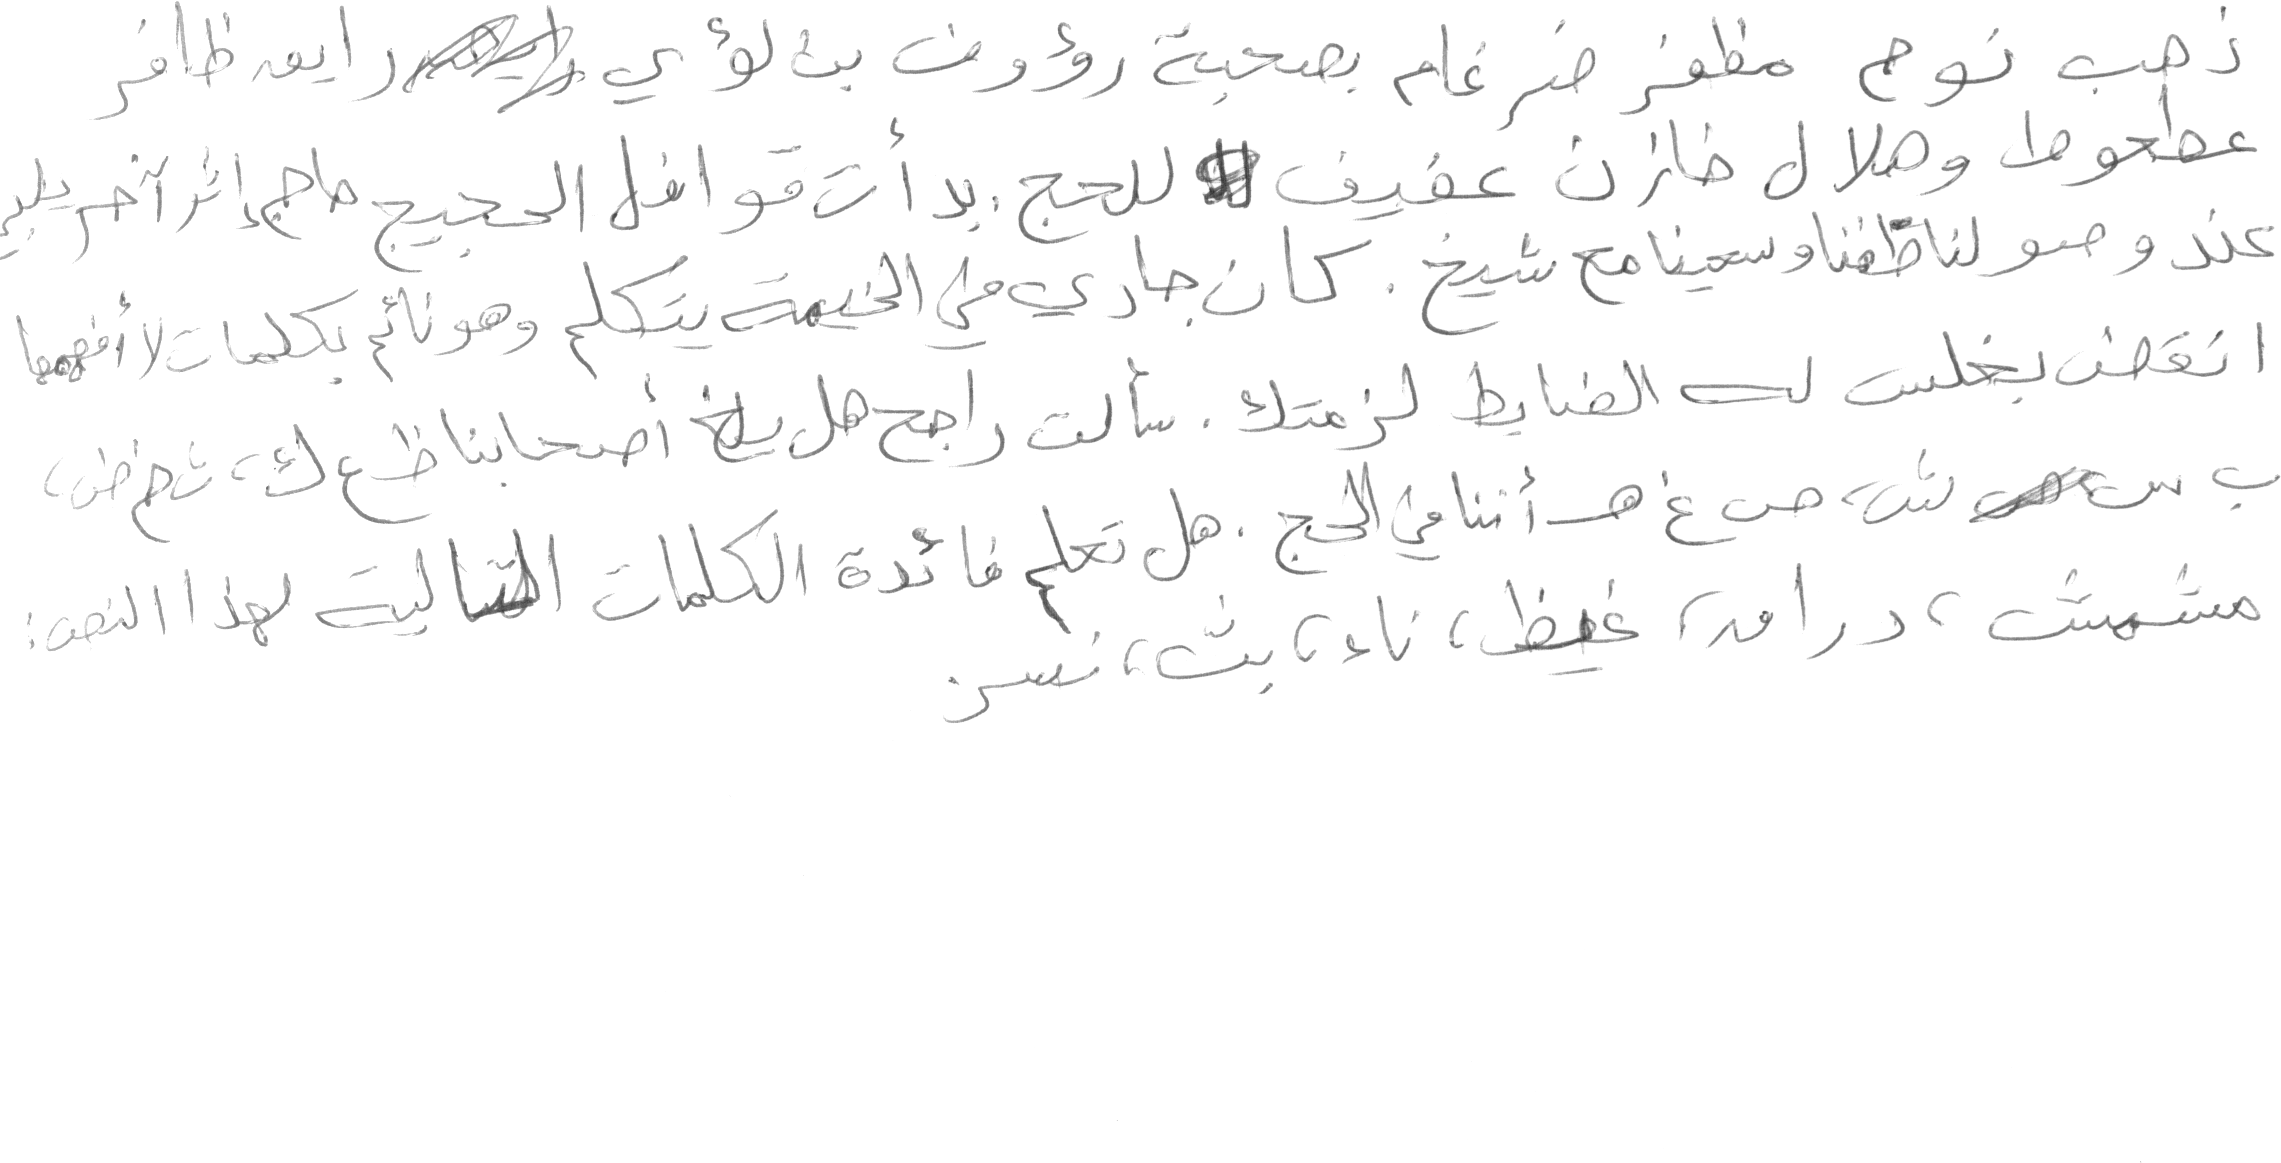 ذهب نوح مظفر ضرغام بصحبة رؤوف بن لؤي رايق ظافر
عطعوط وهلال خازن عفيف للحج. بدأت قوافل الحجيج حاج إثر آخر
عند وصولنا طفنا وسعينا مع شيخ. كان جاري في الخيمة يتكلم وهو نائم بكلمات لا أفهمها
انقض بخلس لـه الضابط لزمتك. سألت راجح هل بلغ أصحابنا ظ ع ك، ث م خ ض،
ب س شـ، ص غ هـ أننا في الحج. هل تعلم فائدة الكلمات التالية لهذا النص:
مشمش، دراق، غيظ، ناء، بث، نسر